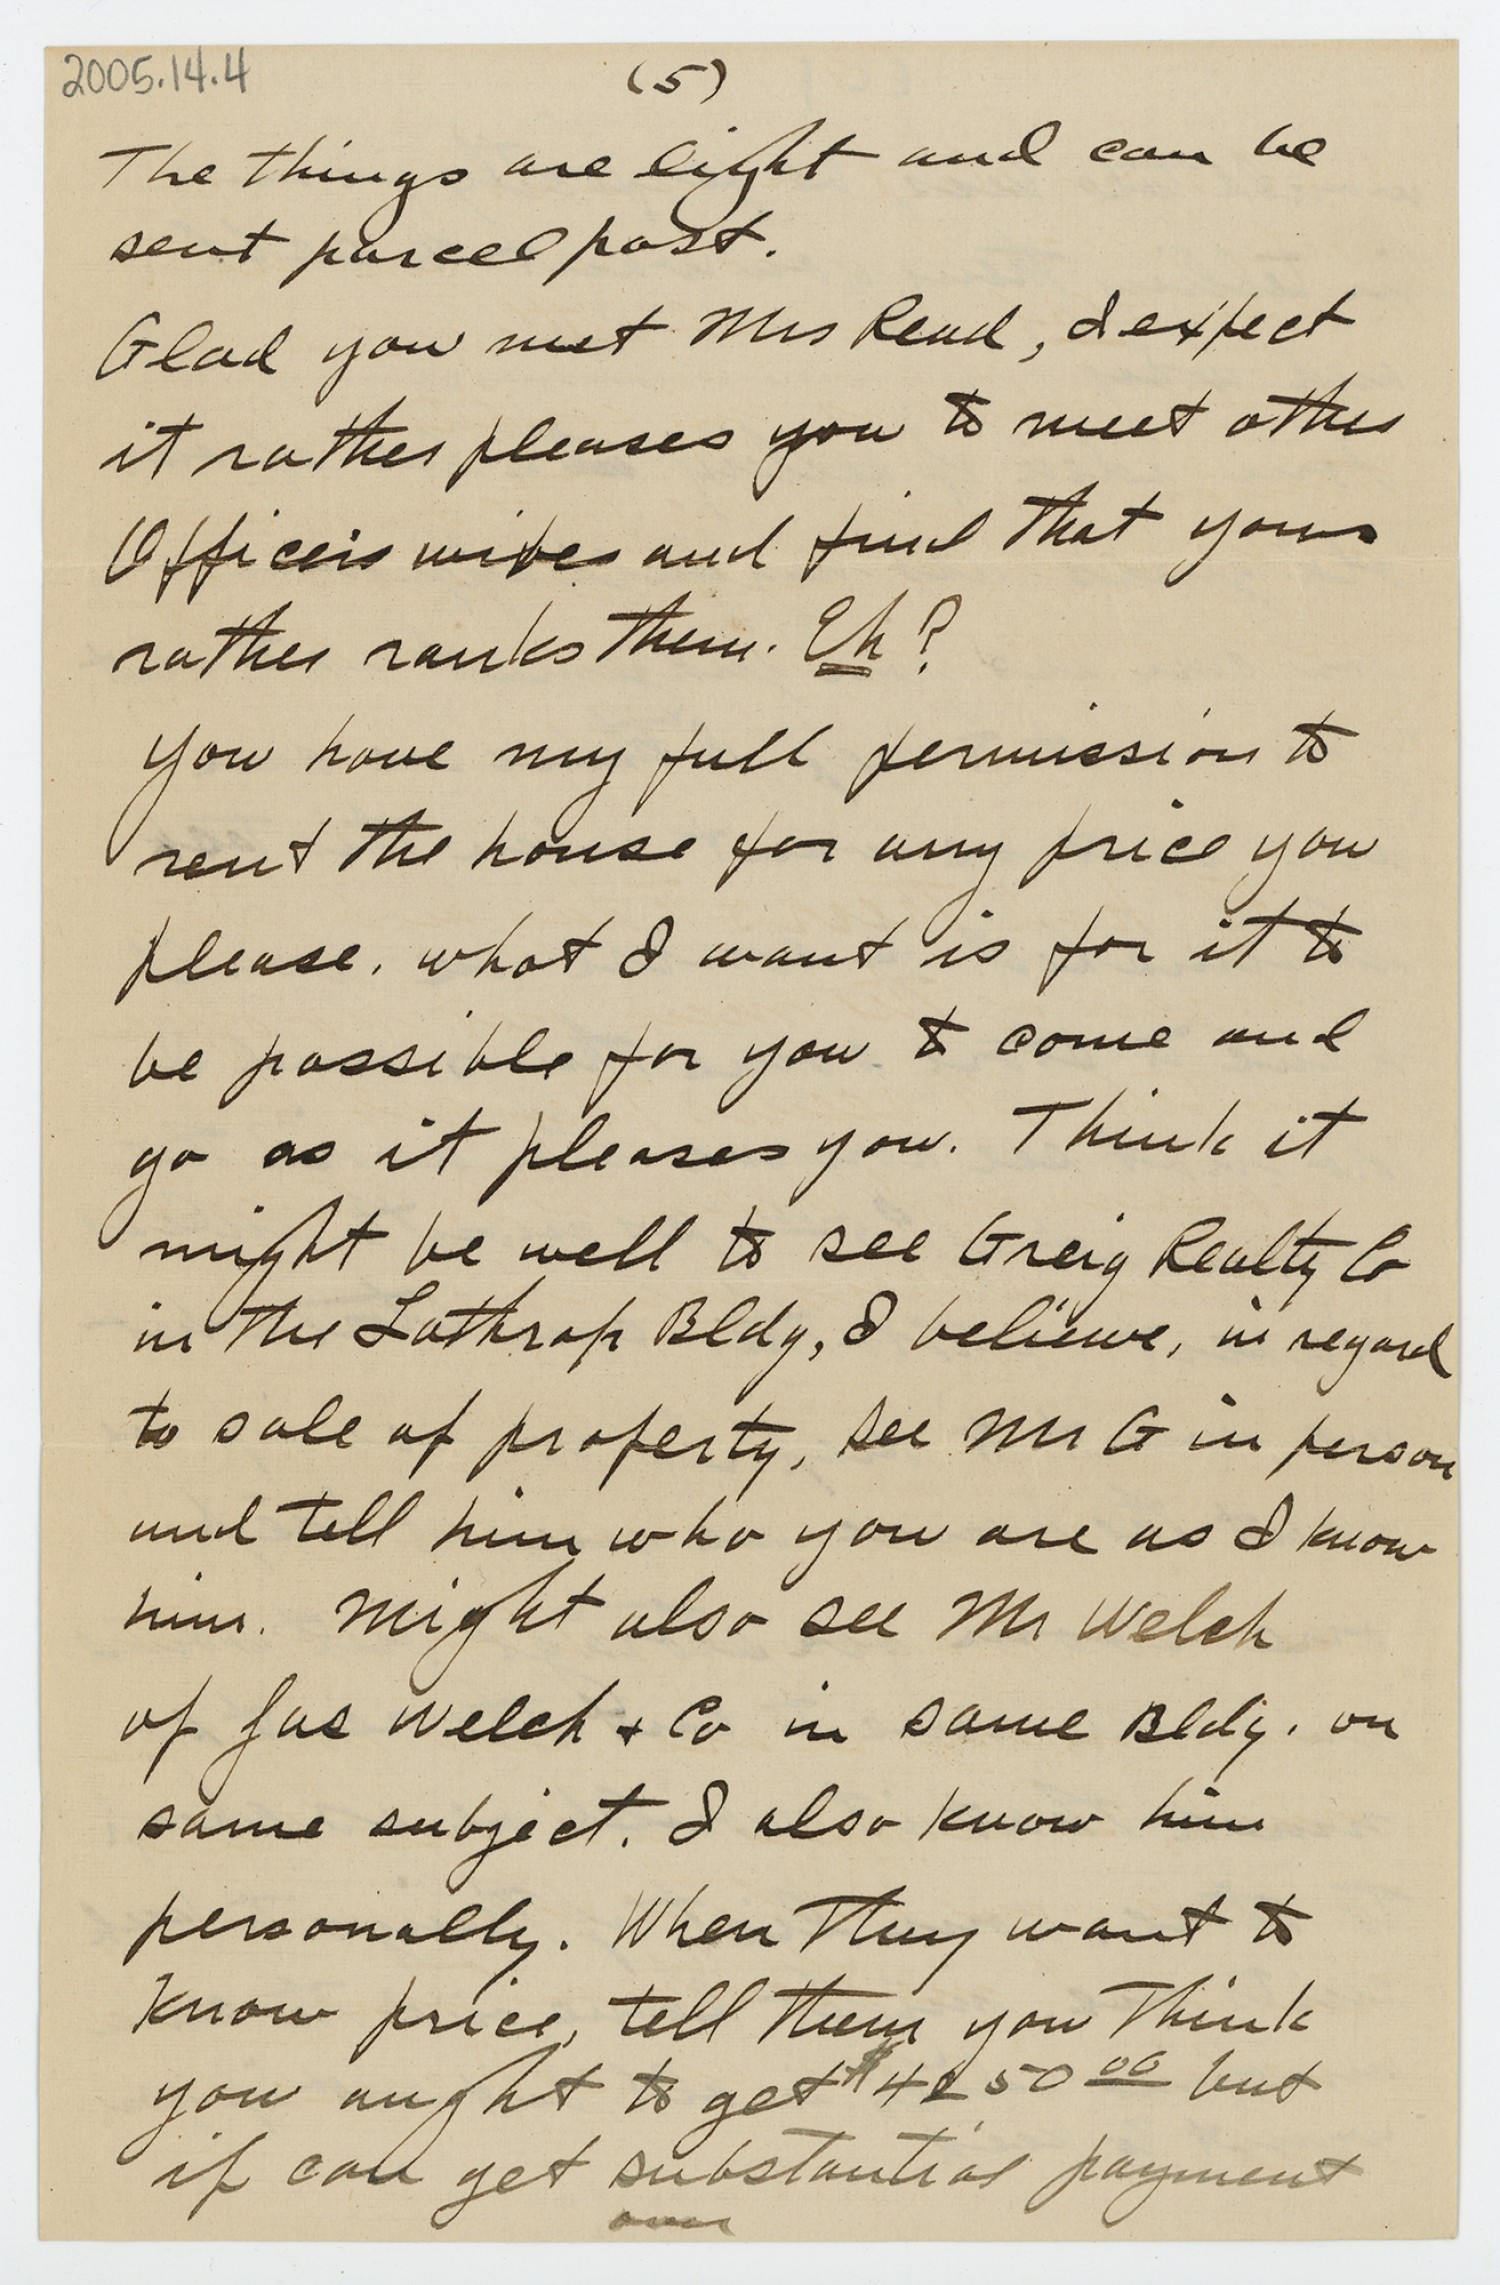 2005.14.4
(5)
The things are light and can be
sent parcel post.
Glad you met Mrs Read, I expect
it rather pleases you to meet other
Officers wives and find that yours
rather ranks them. Eh?
You have my full permission to
rent the house for any price you
please. what I want is for it to
be possible for you to come and
go as it pleases you. Think it
might be well to see Greig Realty Co
in the Lathrop Bldg, I believe, in regard
to sale of property, see Mr G in person
and tell him who you are as I know
him. Might also see Mr Welch
of Jas Welch + Co in same Bldg. on
same subject. I also know him
personally. When they want to
know price, tell them you think
you aught to get $4250 00 but
if can get substantial payment
over